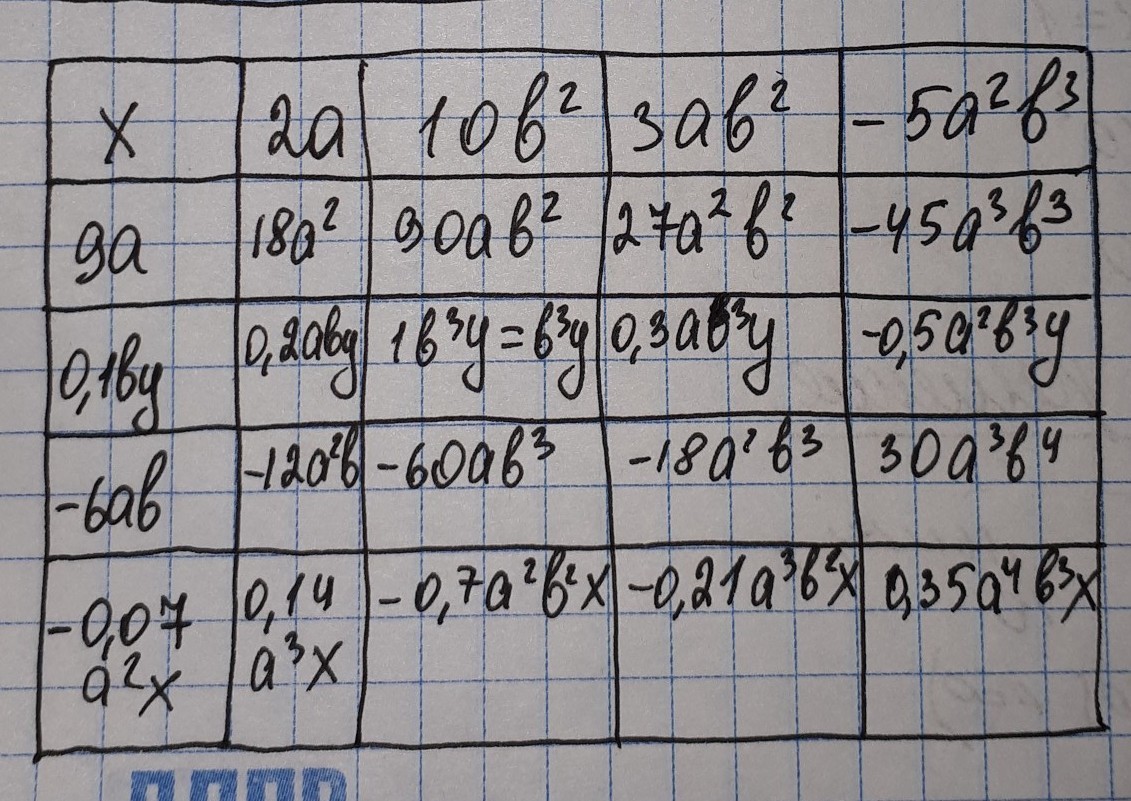 x 2a 10b² 3ab² -5a²b³
9a 18a² 90ab² 27a²b² -45a³b³
0,1by 0,2aby 1b³y=b³y 0,3ab³y -0,5a²b³y
-6ab -12a²b -60ab³ -18a²b³ 30a³b⁴
-0,07 0,14 -0,7a²b²x -0,21a³b²x 0,35a⁴b³x
a²x a³x